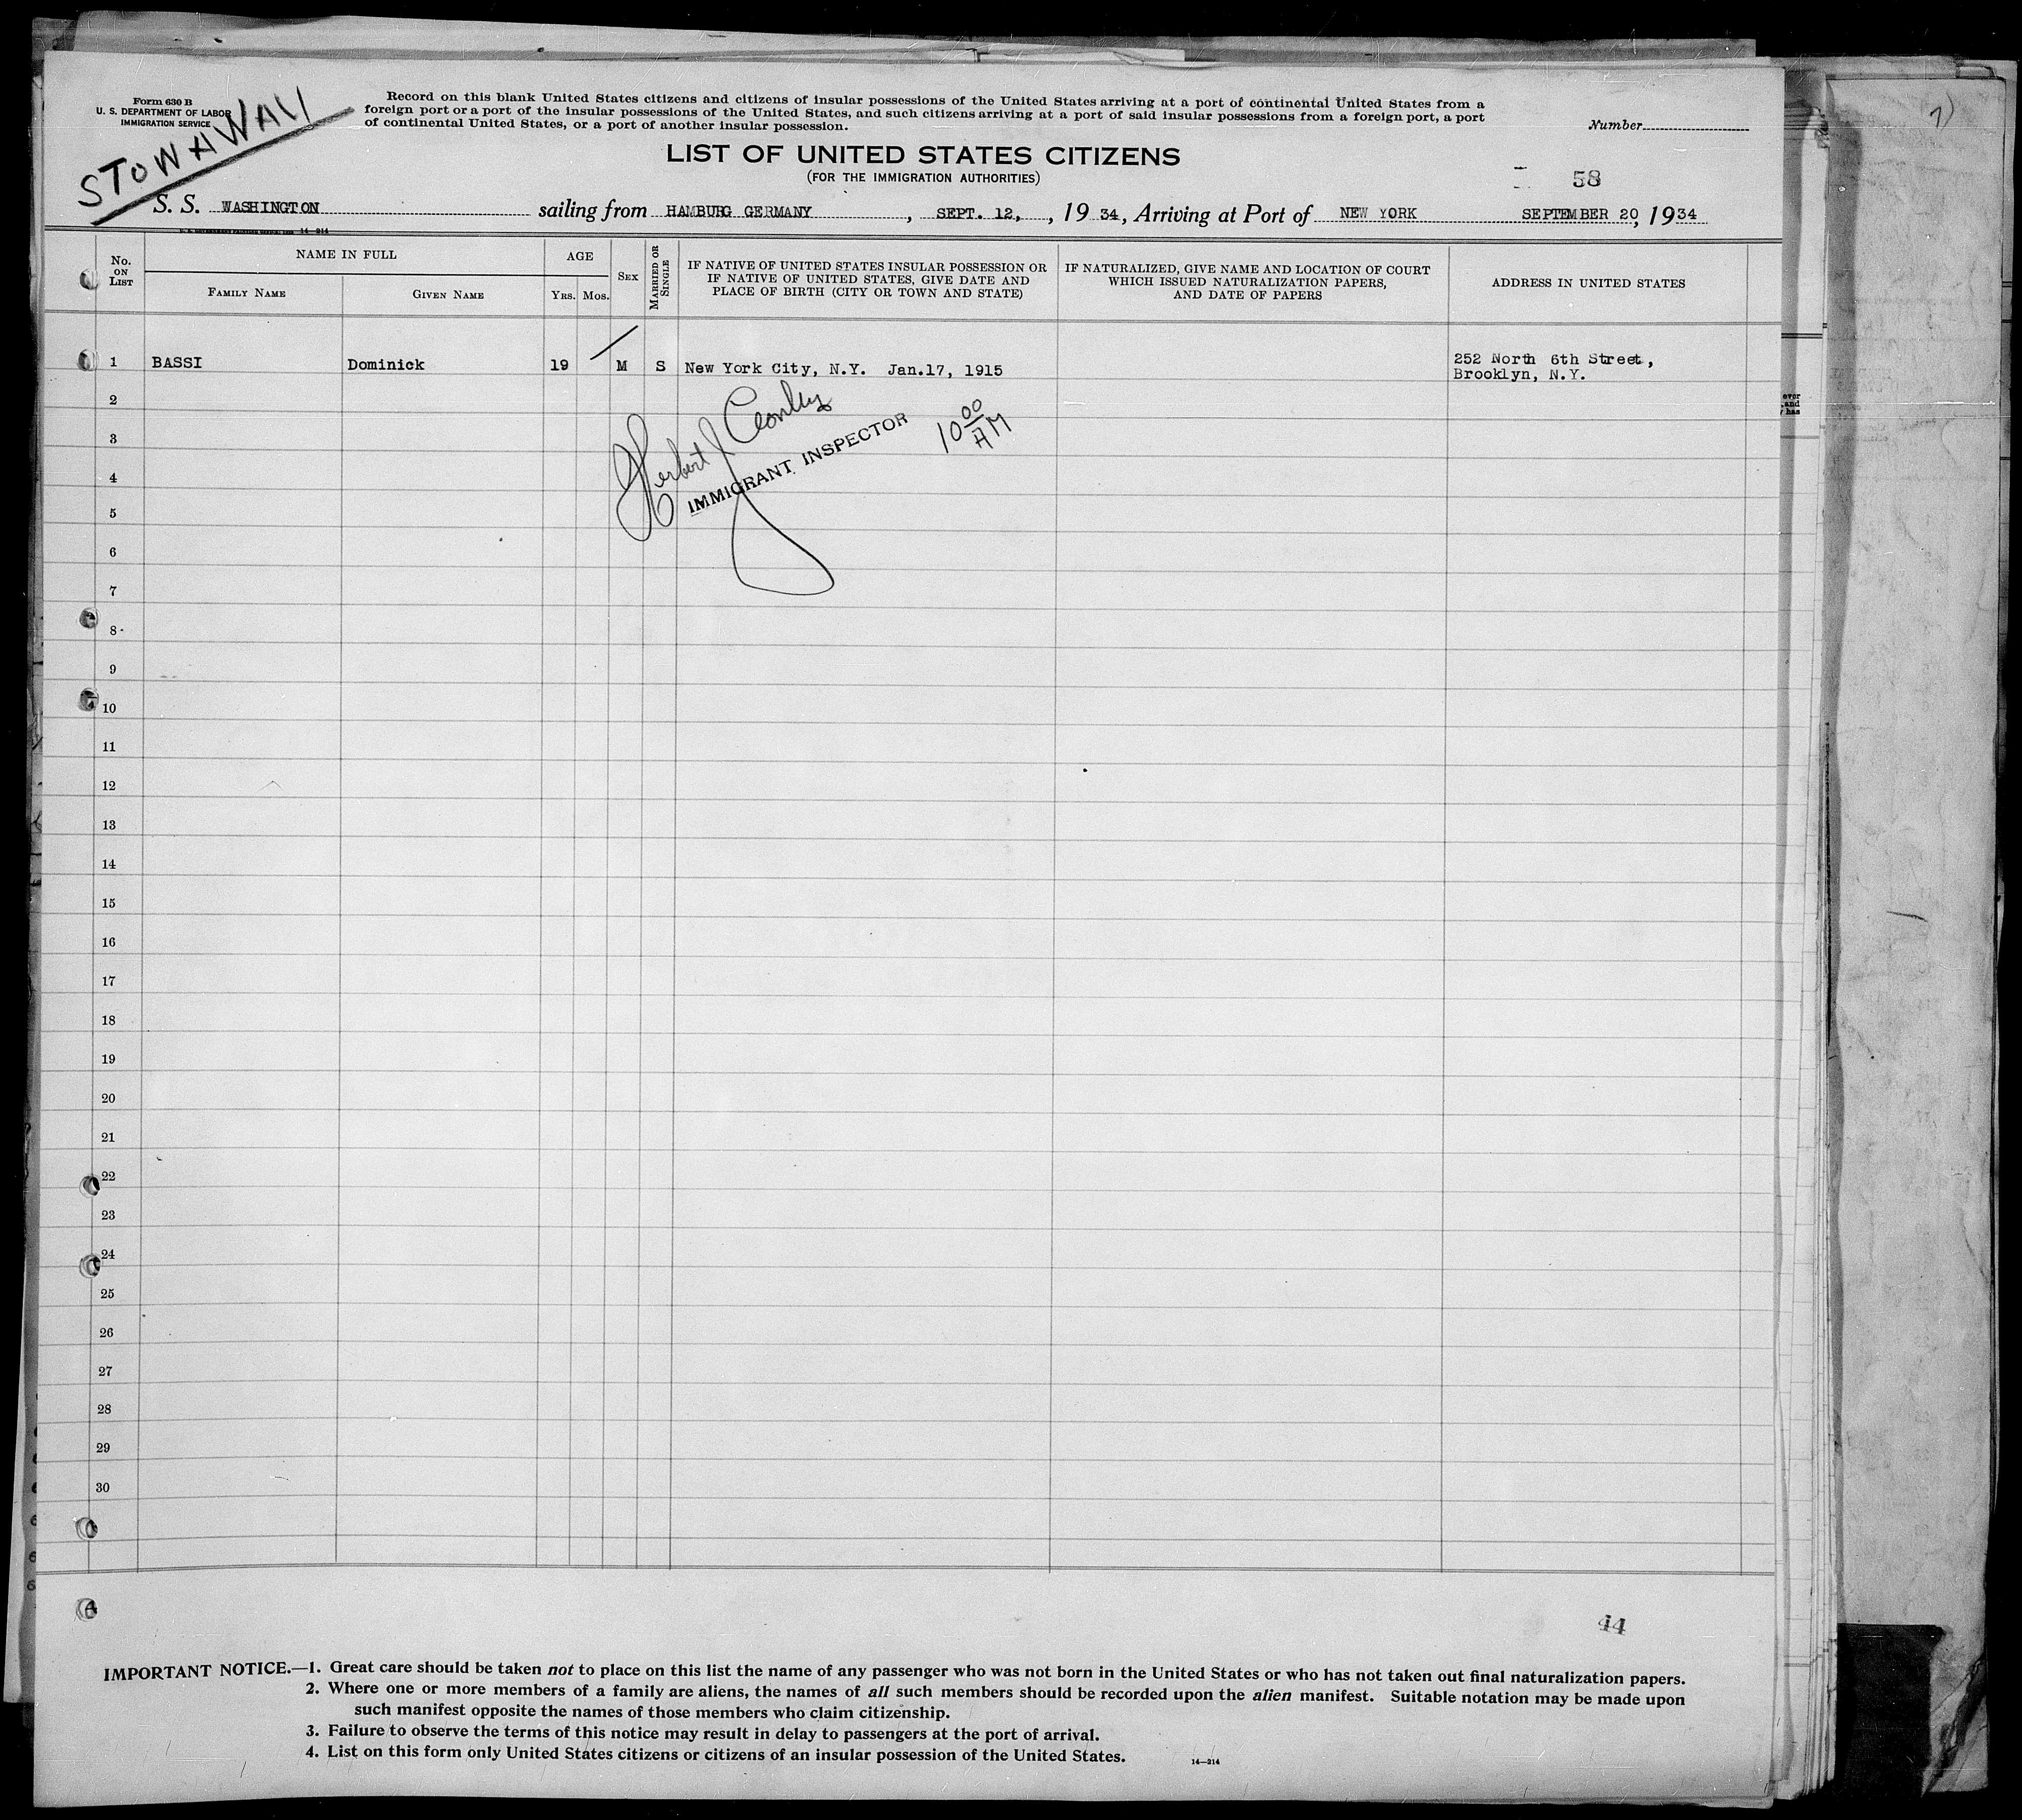 Form 630 B
U. S. DEPARTMENT OF LABOR
IMMIGRATION SERVICE
STOWAWAY
Record on this blank United States citizens and citizens of insular possessions of the United States arriving at a port of continental United States from a
foreign port or a port of the insular possessions of the United States, and such citizens arriving at a port of said insular possessions from a foreign port, a port
of continental United States, or a port of another insular possession.
Number
LIST OF UNITED STATES CITIZENS
(FOR THE IMMIGRATION AUTHORITIES)
58
S. S. WASHINGTON sailing from HAMBURG GERMANY, SEPT. 12, , 19 34, Arriving at Port of NEW YORK SEPTEMBER 20, 1934
14-214
No. ON LIST
NAME IN FULL
FAMILY NAME
GIVEN NAME
AGE
YRS. MOS.
SEX
MARRIED OR SINGLE
IF NATIVE OF UNITED STATES INSULAR POSSESSION OR
IF NATIVE OF UNITED STATES, GIVE DATE AND
PLACE OF BIRTH (CITY OR TOWN AND STATE)
IF NATURALIZED, GIVE NAME AND LOCATION OF COURT
WHICH ISSUED NATURALIZATION PAPERS,
AND DATE OF PAPERS
ADDRESS IN UNITED STATES
1 BASSI Dominick 19 M S New York City, N.Y. Jan.17, 1915 252 North 6th Street,
Brooklyn, N.Y.
Herbert J
IMMIGRANT INSPECTOR
10 00 AM
2
3
4
5
6
7
8
9
10
11
12
13
14
15
16
17
18
19
20
21
22
23
24
25
26
27
28
29
30
44
IMPORTANT NOTICE.—1. Great care should be taken not to place on this list the name of any passenger who was not born in the United States or who has not taken out final naturalization papers.
2. Where one or more members of a family are aliens, the names of all such members should be recorded upon the alien manifest. Suitable notation may be made upon
such manifest opposite the names of those members who claim citizenship.
3. Failure to observe the terms of this notice may result in delay to passengers at the port of arrival.
4. List on this form only United States citizens or citizens of an insular possession of the United States.
14—214